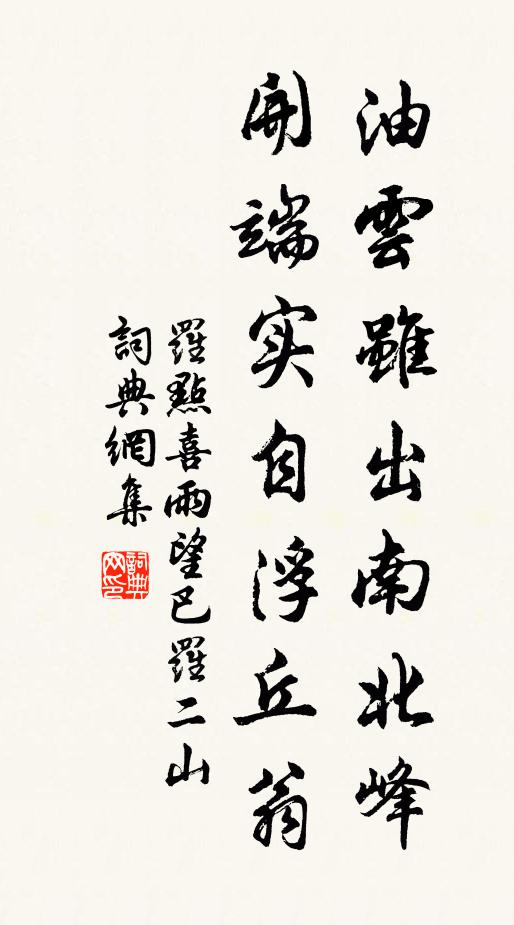 油雲雖出南北峰
開端实自浮丘翁
羅點喜雨望巴羅二山
詞典網集
詞典网印